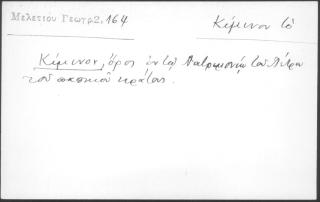 Μελετίου Γεωγρ2, 164
Κίμινον τὸ
Κίμινον, ὄρος ἐν τῷ Πατριμονίῳ τοῦ Πέτρου
τοῦ παπικοῦ κράτους.